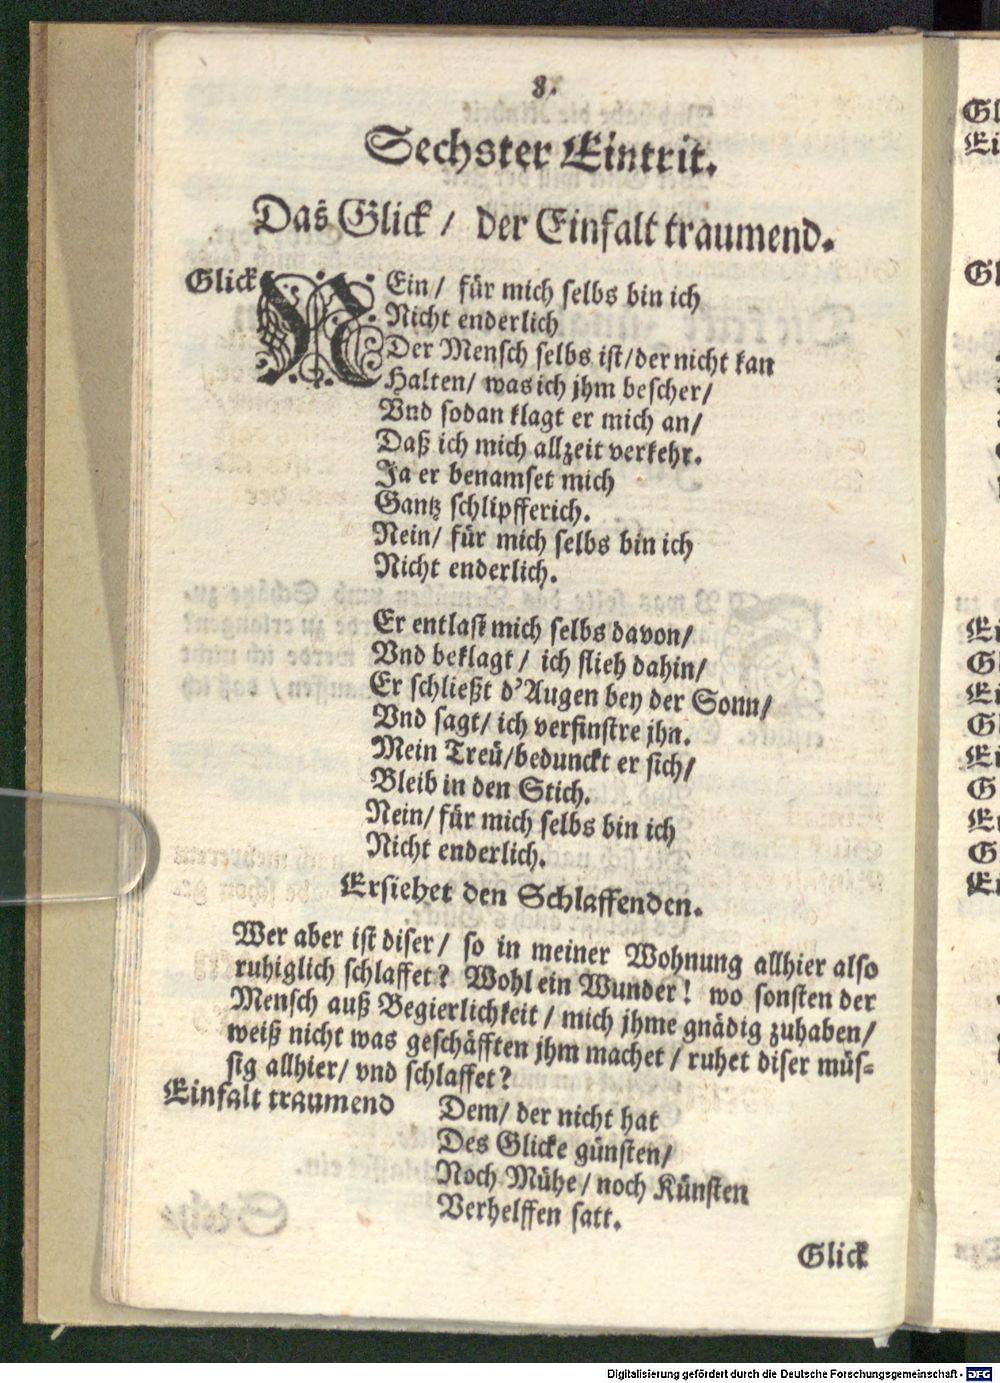 8.
Sechster Eintrit.
Das Glick / der Einfalt traumend.
Glick NEin / für mich selbs bin ich
Nicht enderlich
Der Mensch selbs ist / der nicht kan
Halten / was ich jhm bescher /
Vnd sodan klagt er mich an /
Daß ich mich allzeit verkehr.
Ja er benamset mich
Gantz schlipfferich.
Nein / für mich selbs bin ich
Nicht enderlich.
Er entlast mich selbs davon /
Vnd beklagt / ich flieh dahin /
Er schließt d'Augen bey der Sonn /
Vnd sagt / ich verfinstre jhn.
Mein Treü / bedunckt er sich /
Bleib in den Stich.
Nein / für mich selbs bin ich
Nicht enderlich.
Ersiehet den Schlaffenden.
Wer aber ist diser / so in meiner Wohnung allhier also
ruhiglich schlaffet? Wohl ein Wunder! wo sonsten der
Mensch auß Begierlichkeit / mich jhme gnädig zuhaben /
weiß nicht was geschäfften jhm machet / ruhet diser müs-
sig allhier / vnd schlaffet?
Einfalt traumend Dem / der nicht hat
Des Glicke günsten /
Noch Mühe / noch Künsten
Verhelffen satt.
Glick
Gl
Ei
Gl
Ei
Gl
Ei
Gl
Ei
G
Ei
G
Ei
Digitalisierung gefördert durch die Deutsche Forschungsgemeinschaft - DFG